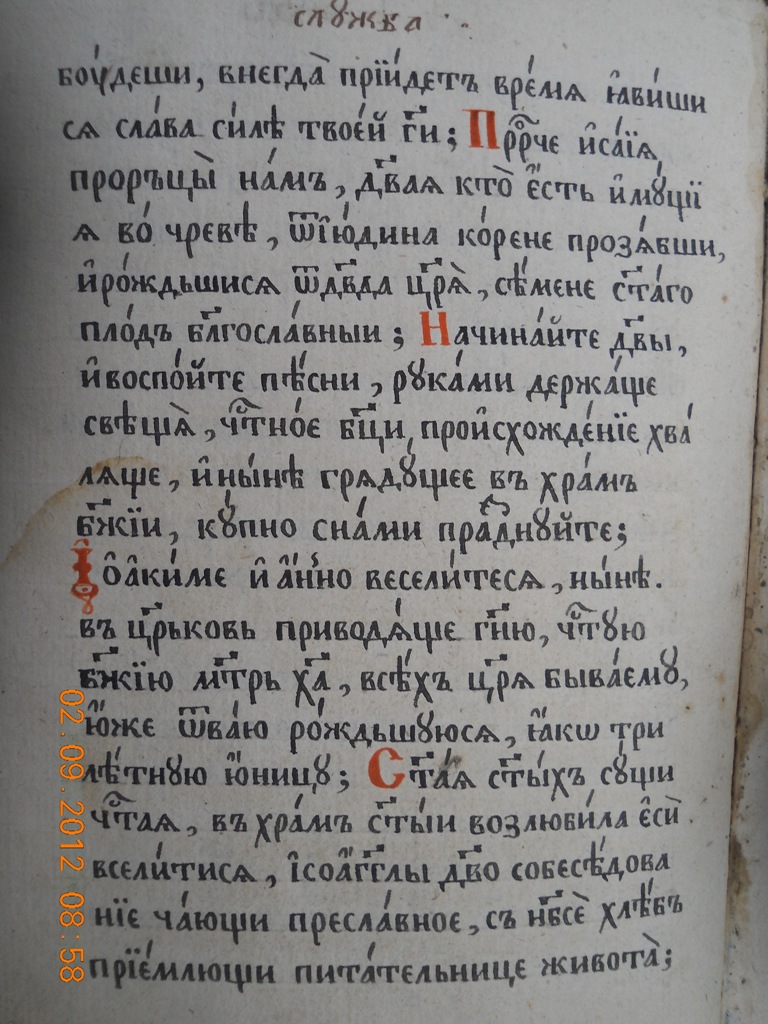 слꙋжба
боꙋ́деши, внегда̀ прїи́детъ вре́мя ꙗ҆ви́ши
ся сла́ва си́лѣ твое́й гд҇и; Прⷪ҇рче и҆са́їѧ,
прорьцы̀ на́мъ, дв҃ая кто̀ є҆́сть и҆мꙋ́щїи
ѧ во́ чревѣ, ѿїю́дина ко́рене прозѧ́вши,
и҆ро́ждьшисѧ ѿдв҃да цр҃ѧ̀, сѣ́мене ст҃а́го
пло́дъ бл҃госла́вныи; Начина́йте дв҃ы,
и҆воспо́йте пѣ́сни, рꙋка́ми держа́ще
свѣщѧ̀, чⷭ҇тно́є бц҃и, происхожде́нїє хва́
лѧще, и҆ны́нѣ грѧдꙋ́щеє въ хра́мъ
бж҃їи, кꙋ́пно сна́ми пра́зднꙋйте;
І҆ѻ҆аки́ме и҆ а҆́нно весели́тесѧ, ны́нѣ.
въ цр҃ьковь приводѧ́ще гж҃ю, чⷭ҇тꙋю
бж҃їю мт҃рь хⷭ҇а, всѣ́хъ цр҃ѧ быва́ємꙋ,
ю҆́же ѿва́ю ро́ждьшꙋюсѧ, ꙗ҆́кѡ три
лѣ́тнꙋю ю҆́ницꙋ; Ст҃а́ѧ ст҃ы́хъ сꙋ́щи
чⷭ҇таѧ, въ хра́мъ ст҃ы́и возлюби́ла є҆сѝ.
всели́тисѧ, і҆соа҆́гг҃лы дв҃о собесѣ́дова
нїє ча́ющи пресла́вноє, съ нб҃сѐ хлѣ́бъ
прїє́млющи пита́тельнице живота̀;
02.09.2012 08:58